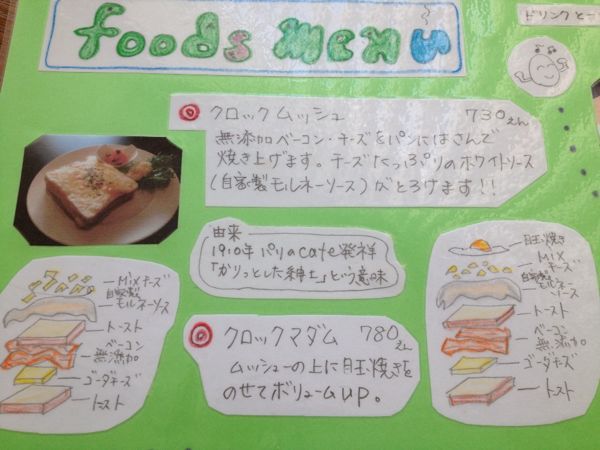 foods menu
ドリンクと一
クロックムッシュ 730えん
無添加ベーコン・チーズをパンにはさんで
焼き上げます。チーズたっぷりのホワイトソース
(自家製モルネーソース)がとろけます!!
由来
1910年パリのcafe発祥
「カリッとした紳士」という意味
クロックマダム 780えん
ムッシューの上に目玉焼きを
のせてボリュームup。
Mixチーズ
自家製
モルネーソース
トースト
ベーコン
無添加
ゴーダチーズ
トースト
目玉焼き
Mix
チーズ
自家製
モルネー
ソース
トースト
ベーコン
無添加
ゴーダチーズ
トースト